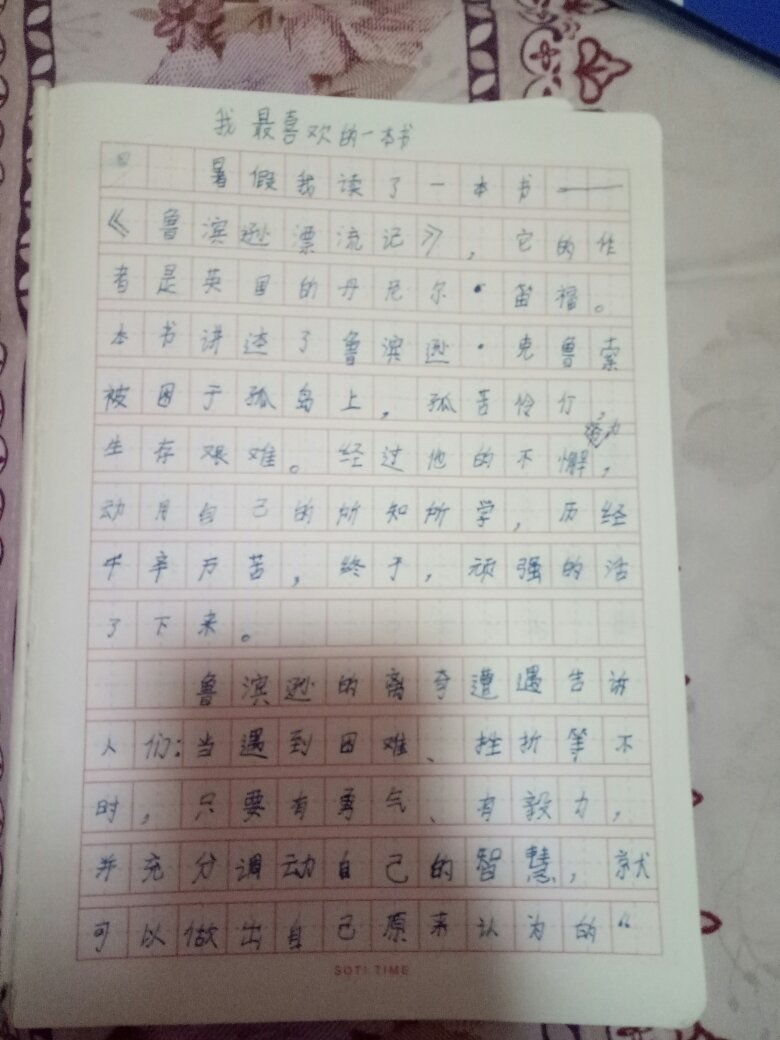 我最喜欢的一本书
暑假我读了一本书——
《鲁滨逊漂流记》，它的作
者是英国的丹尼尔·笛福。
本书讲述了鲁滨逊·克鲁索
被困于孤岛上，孤苦伶仃，
生存艰难。经过他的不懈努力，
动用自己的所知所学，历经
千辛万苦，终于，顽强的活
了下来。
鲁滨逊的离奇遭遇告诉
人们：当遇到困难、挫折等不
时，只要有勇气、有毅力，
并充分调动自己的智慧，就
可以做出自己原来认为的“
SOTI TIME